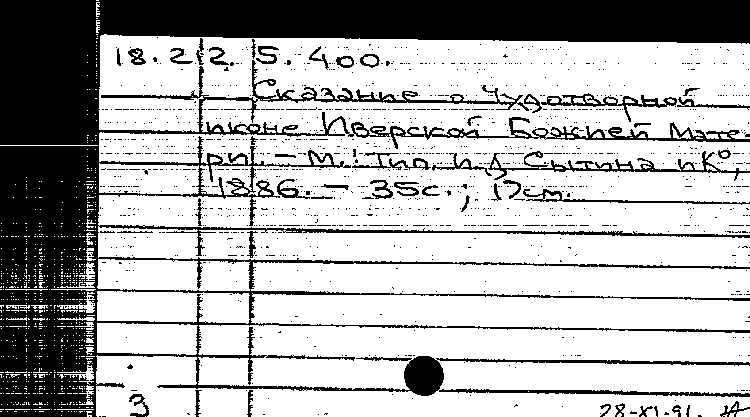 18.22.5.400.
Сказание о чудотворной
иконе Иверской Божией Мате-
ри. - М.: Тип. И.Д. Сытина и К°,
1886. - 35с.; 17см.
3
28-XI-91.